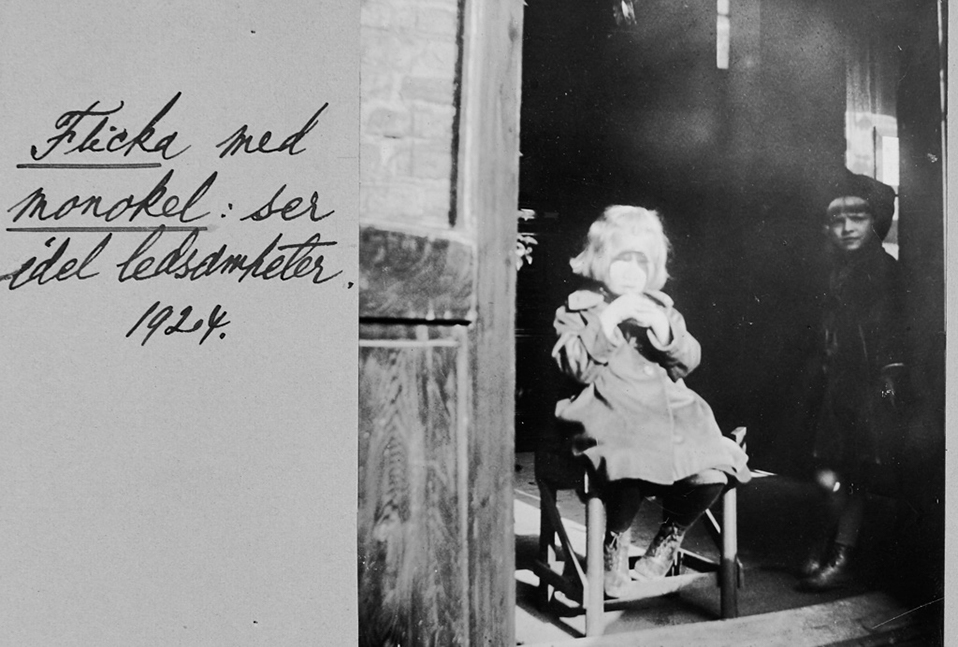 Flicka med
monokel: ser
idel ledsamheter.
1924.